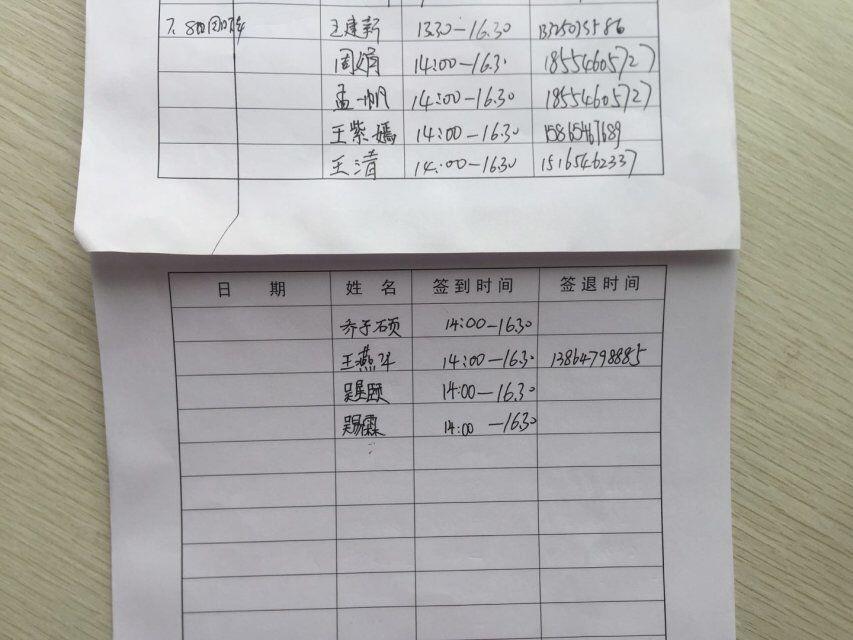 7.8日团队 王建新 13.30-16.30 13250735786
周娟 14:00-16.30 18554605727
孟一帆 14:00-16.30 18554605727
王紫嫣 14:00-16.30 15865467689
王清 14:00-16.30 15165462337
日 期 姓 名 签到时间 签退时间
乔子硕 14:00-16.30
王燕华 14:00-16.30 13864798885
14:00-16.30
14:00-16.30